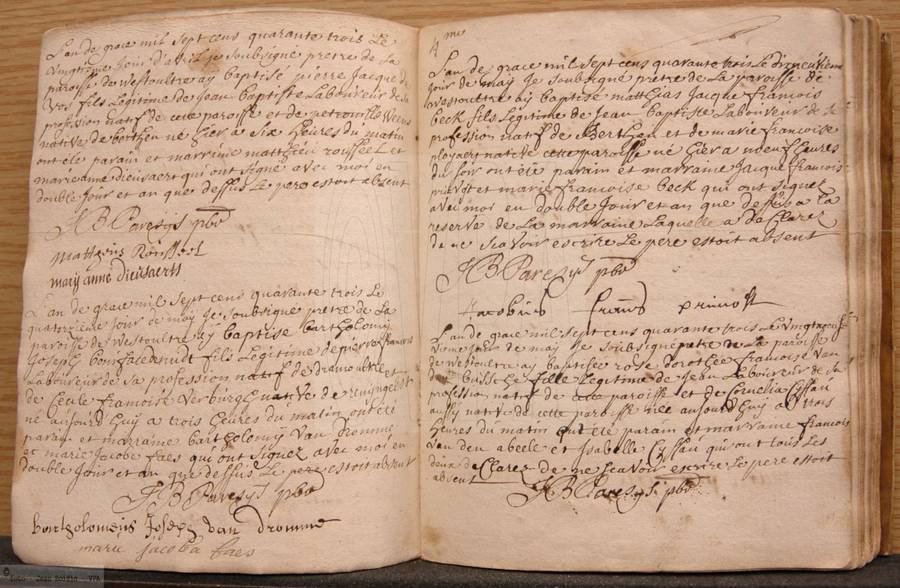 L'an de grace mil sept cens quarante trois Le
vingtieme jour d'avril je soubsigné pretre de La
paroisse de Westoultre ay baptisé pierre Jacque
fils Legitime de Jean baptiste Laboureur de sa
profession natif de cette paroisse et de petronille
native de berthen né hier a six heures du matin
ont eté parain et marrinne matthieu roussel et
marie anne dieusaert qui ont signé avec moi en
double jour et an que dessus Le pere estoit absent
J B Paresys pbr
Mattheus Roussel
marij anne dieusaerts
L'an de grace mil sept cens quarante trois Le
quatorzieme jour de maÿ je soubsigné pretre de La
paroisse de Westoultre aÿ baptisé bartholomÿ
Joseph fils Legitime de pierre francois
Laboureur de sa profession natif de dranoultre et
de Cecile francoise Verburgh native de reningelst
né aujourd huÿ a trois heures du matin ont eté
parain et marrainne bartholomÿ Van dromme
et marie Jacobe faes qui ont signez avec moÿ en
double Jour et an que dessus Le pere estoit absent
J B Paresys pbr
bartholomeus Joseph van dromme
marie jacoba faes
4 me
L'an de grace mil sept cens quarante trois Le dixneufvieme
jour de maÿ je soubsigné pretre de La paroisse de
Westoultre aÿ baptisé matthias Jacque francois
beck fils Legitime de Jean baptiste Laboureur de sa
profession natif de Berthen et de marie francoise
ployaert native cette paroisse né hier a noeuf heures
du soir ont eté parain et marraine Jacque francois
prievost et marie francoise beck qui ont signez
avec moi en double Jour et an que dessus a la
reserve de La marraine Laquelle a declarez
de ne scavoir escrire Le pere estoit absent
J B Paresys pbr
Jacobus frans privost
L'an de grace mil sept cens quarante trois Le vingtneuf-
vieme jour de maÿ je soubsigné pretre de La paroisse
de Westoultre aÿ baptisée rose dorothée francoise Van
de fille Legitime de Jean Laboureur de sa
profession natif de cette paroisse et de Cornelia Cÿssau
aussÿ native de cette paroisse née aujourd huÿ a trois
heures du matin ont eté parain et marraine francois
Van den abeele et Isabelle Cÿssau qui ont tous Les
deux declarez de ne scavoir escrire Le pere estoit
absent
J B Paresys pbr
© Foto - Jean Roizin - VVF